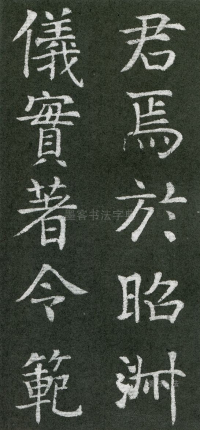 君焉於昭淋
儀實著令範
墨客书法字典